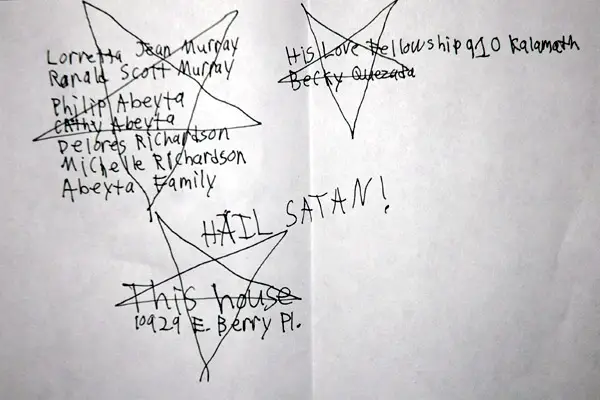 Lorretta Jean Murray
Ranald Scott Murray
Philip Abeyta
Cathy Abeyta
Delores Richardson
Michelle Richardson
Abeyta Family
His Love Fellowship 910 Kalamath
Becky Quezada
HAIL SATAN!
This house
10929 E. Berry Pl.